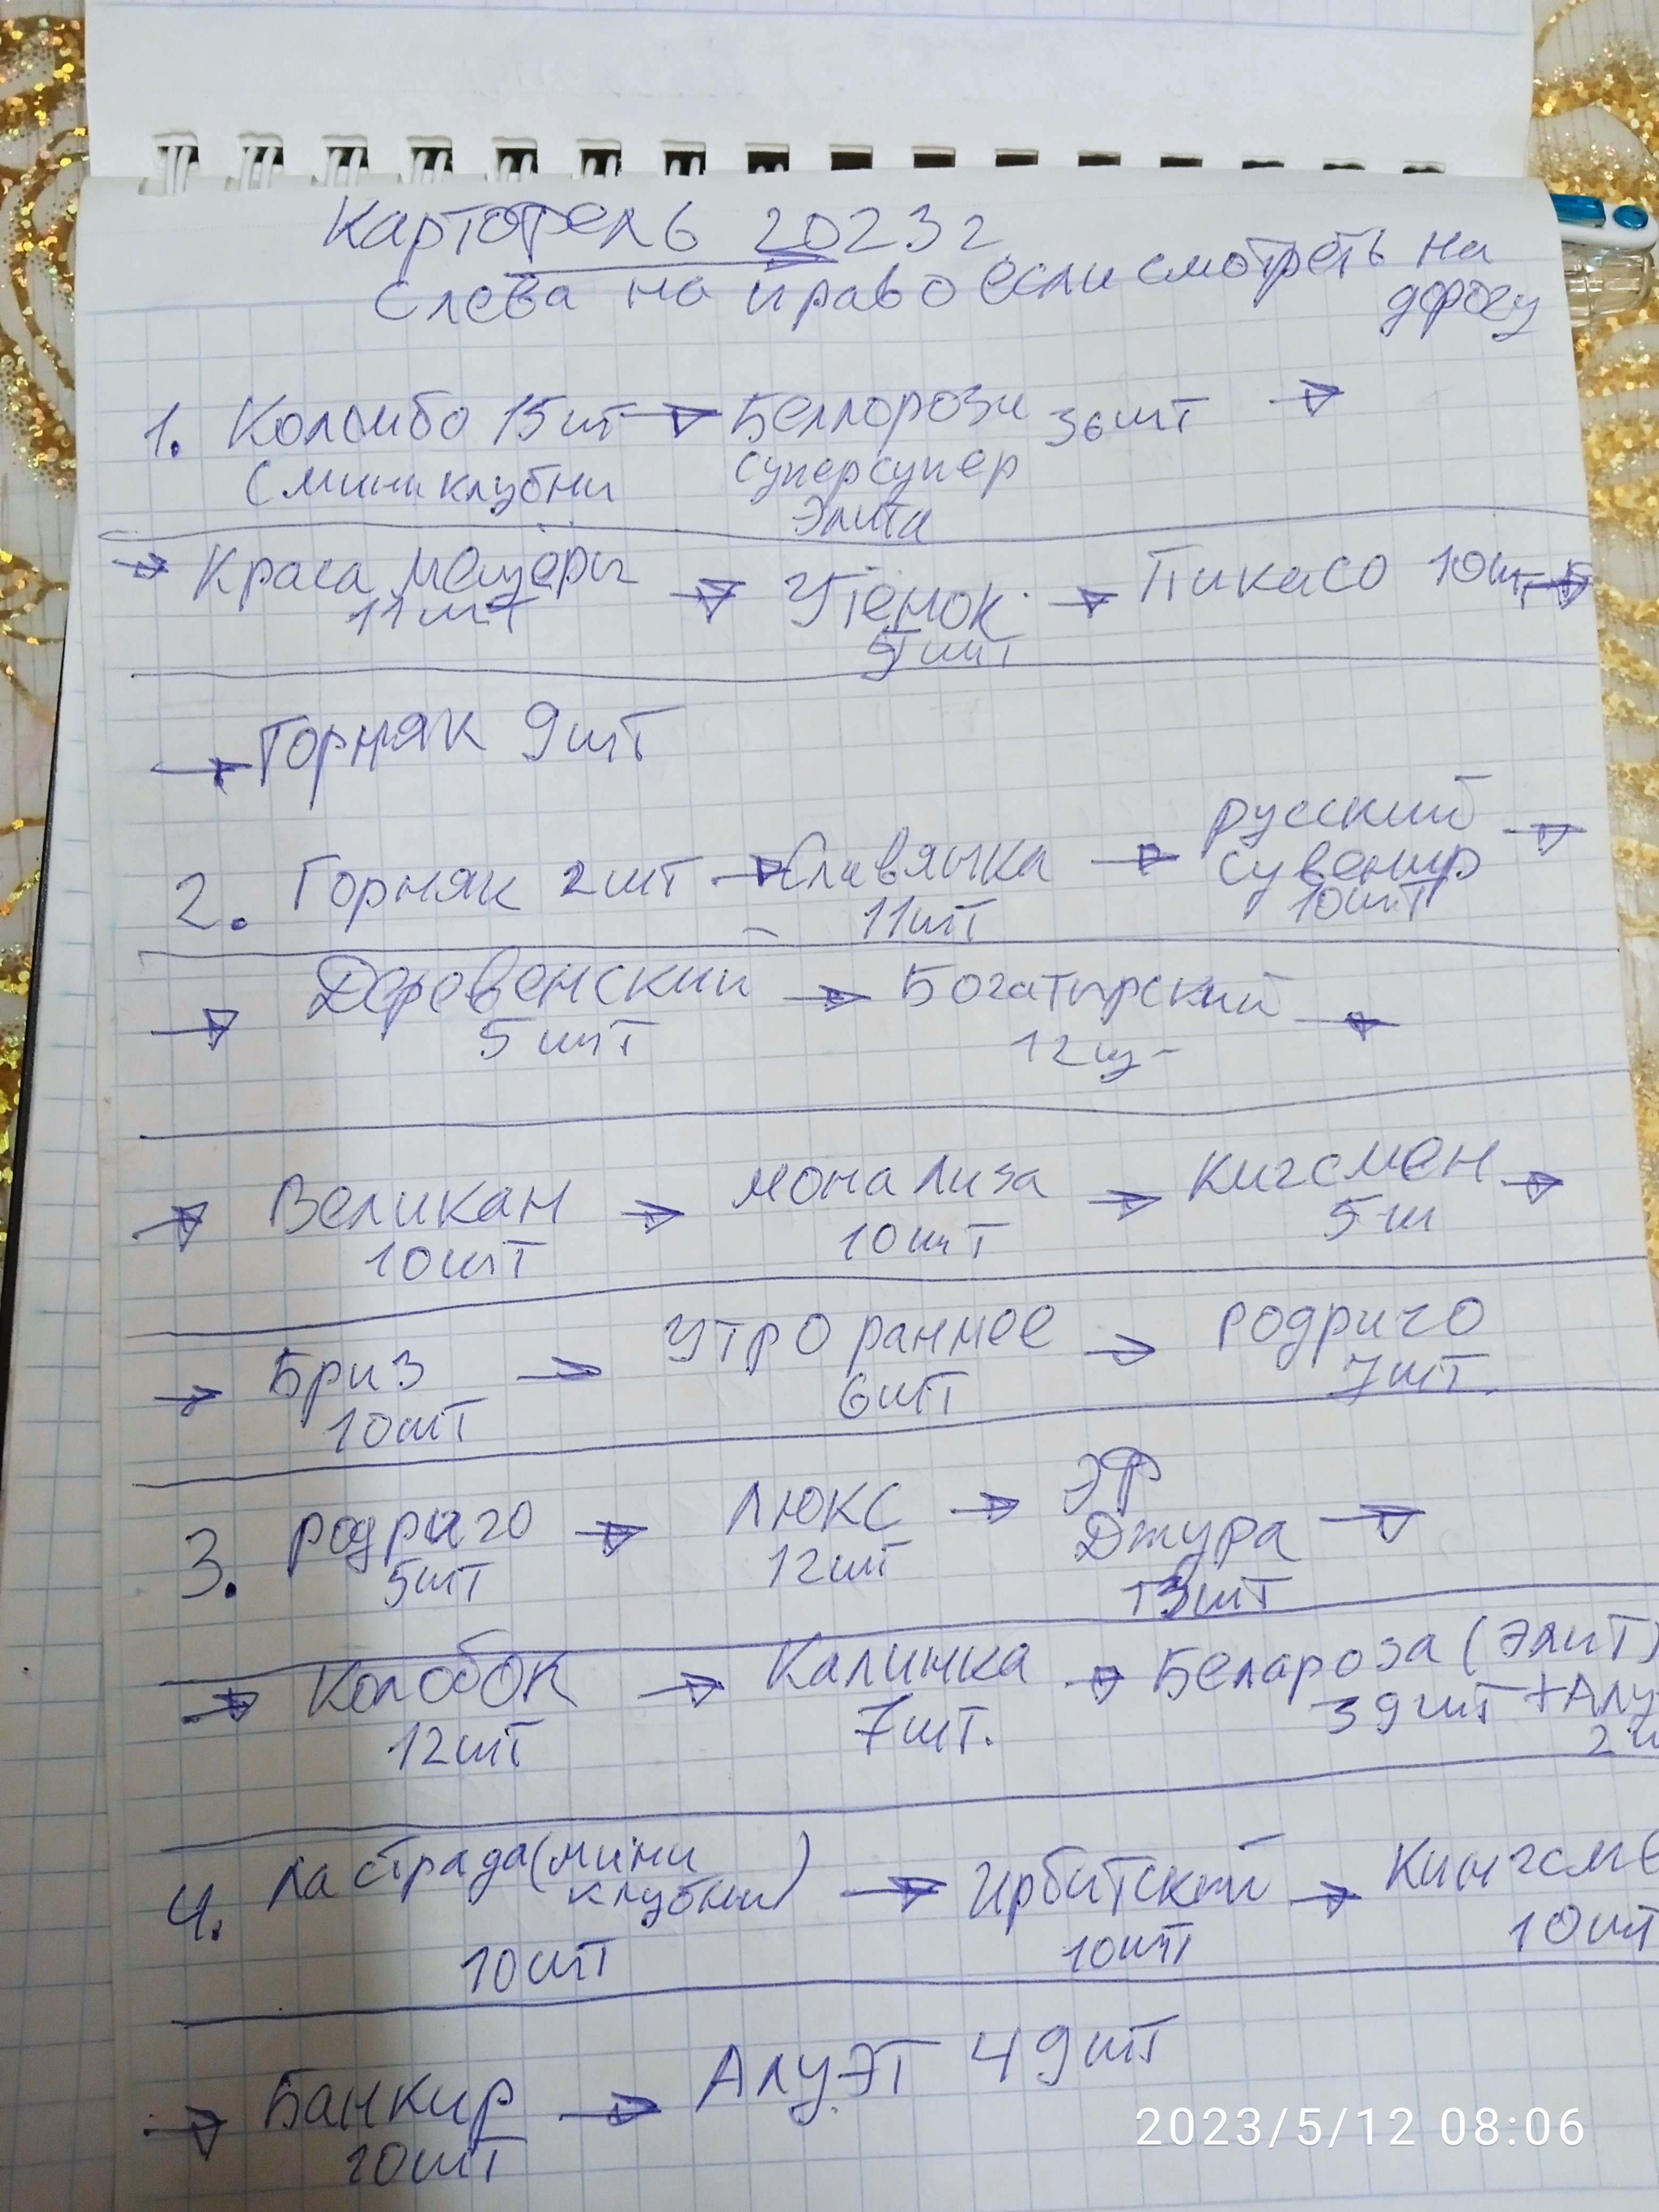 Картофель 2023г
Слева на право если смотреть на
дорогу
1. Коломбо 15шт → Беллорози 36шт →
С мини клубни суперсупер
Элита
→ Краса мещёры → Утёнок → Пикасо 10шт →
11шт 9шт
→ Горняк 9шт
2. Горняк 2шт → Славянка → русский →
11шт сувенир
10шт
→ Деревенский → Богатырский →
5шт 12ш
→ Великан → мона Лиза → Кигсмен →
10шт 10шт 5ш
→ Бриз → Утро раннее → Родриго
10шт 6шт 7шт.
3. родриго → Люкс → ЭФ
5шт 12шт Джура →
13шт
→ Колобок → Калинка → Белароза (Элит)
12шт 7шт. 39шт + Алу
2ш
4. Ла страда (мини → Ирбитский → Кингсме
клубни)
10шт 10шт 10шт
→ Банкир → Алуэт 49шт
10шт
2023/5/12 08:06